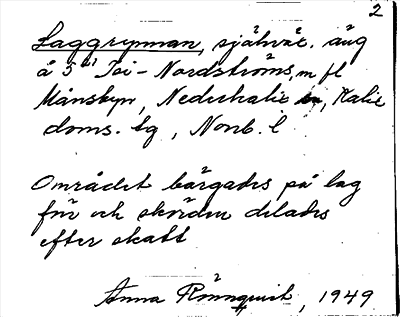 2
Laggrynnan, självär. äng
å 5 Toi-Nordströms, m fl
Månsbyn, Nederkalix, Kalix
doms. lg, Norrb. l
Området bärgades på lag
för och skörden delades
efter skatt
Anna Rönnquist, 1949